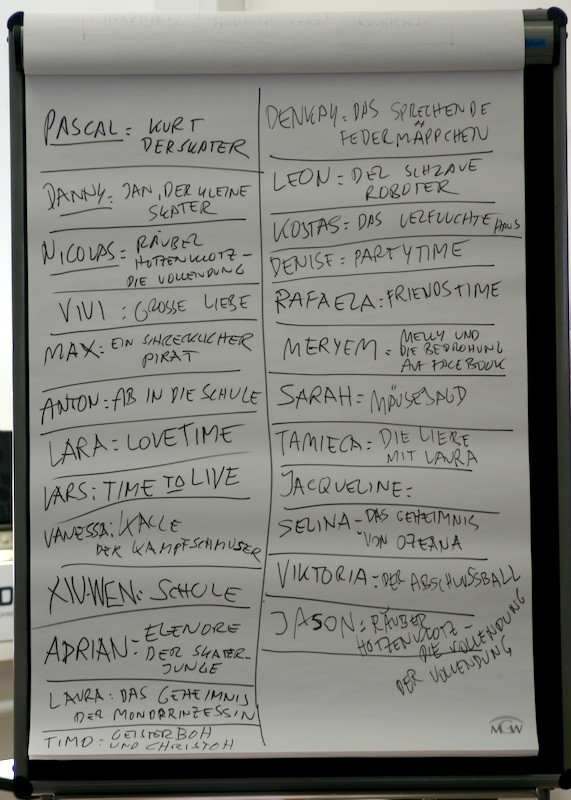 PASCAL = KURT
DER SKATER
DANNY: JAN, DER KLEINE
SKATER
NICOLAS = RÄUBER
HOTZENKLOTZ -
DIE VOLLENDUNG
VIVI : GROSSE LIEBE
MAX: EIN SCHRECKLICHER
PIRAT
ANTON: AB IN DIE SCHULE
LARA: LOVETIME
LARS: TIME TO LIVE
VANESSA: KALLE
DER KAMPFSCHMUSER
XIU-WEN: SCHULE
ADRIAN: ELENDRE
DER SKATER-
JUNGE
LAURA: DAS GEHEIMNIS
DER MONDPRINZESSIN
TIMO: GEISTERBOH
UND CHRISTOH
DENKAY: DAS SPRECHENDE
FEDERMÄPPCHEN
LEON: DER SCHLAUE
ROBOTER
KOSTAS: DAS VERFLUCHTE HAUS
DENISE: PARTYTIME
RAFAELA: FRIENDSTIME
MERYEM = MELLY UND
DIE BEDROHUNG
AUF FACEBOOK
SARAH = MÄUSEJAGD
TAMIECA: DIE LIEBE
MIT LAURA
JACQUELINE:
SELINA - DAS GEHEIMNIS
VON OZEANA
VIKTORIA: DER ABSCHLUSSBALL
JASON: RÄUBER
HOTZENKLOTZ -
DIE VOLLENDUNG
DER VOLLENDUNG
MGW